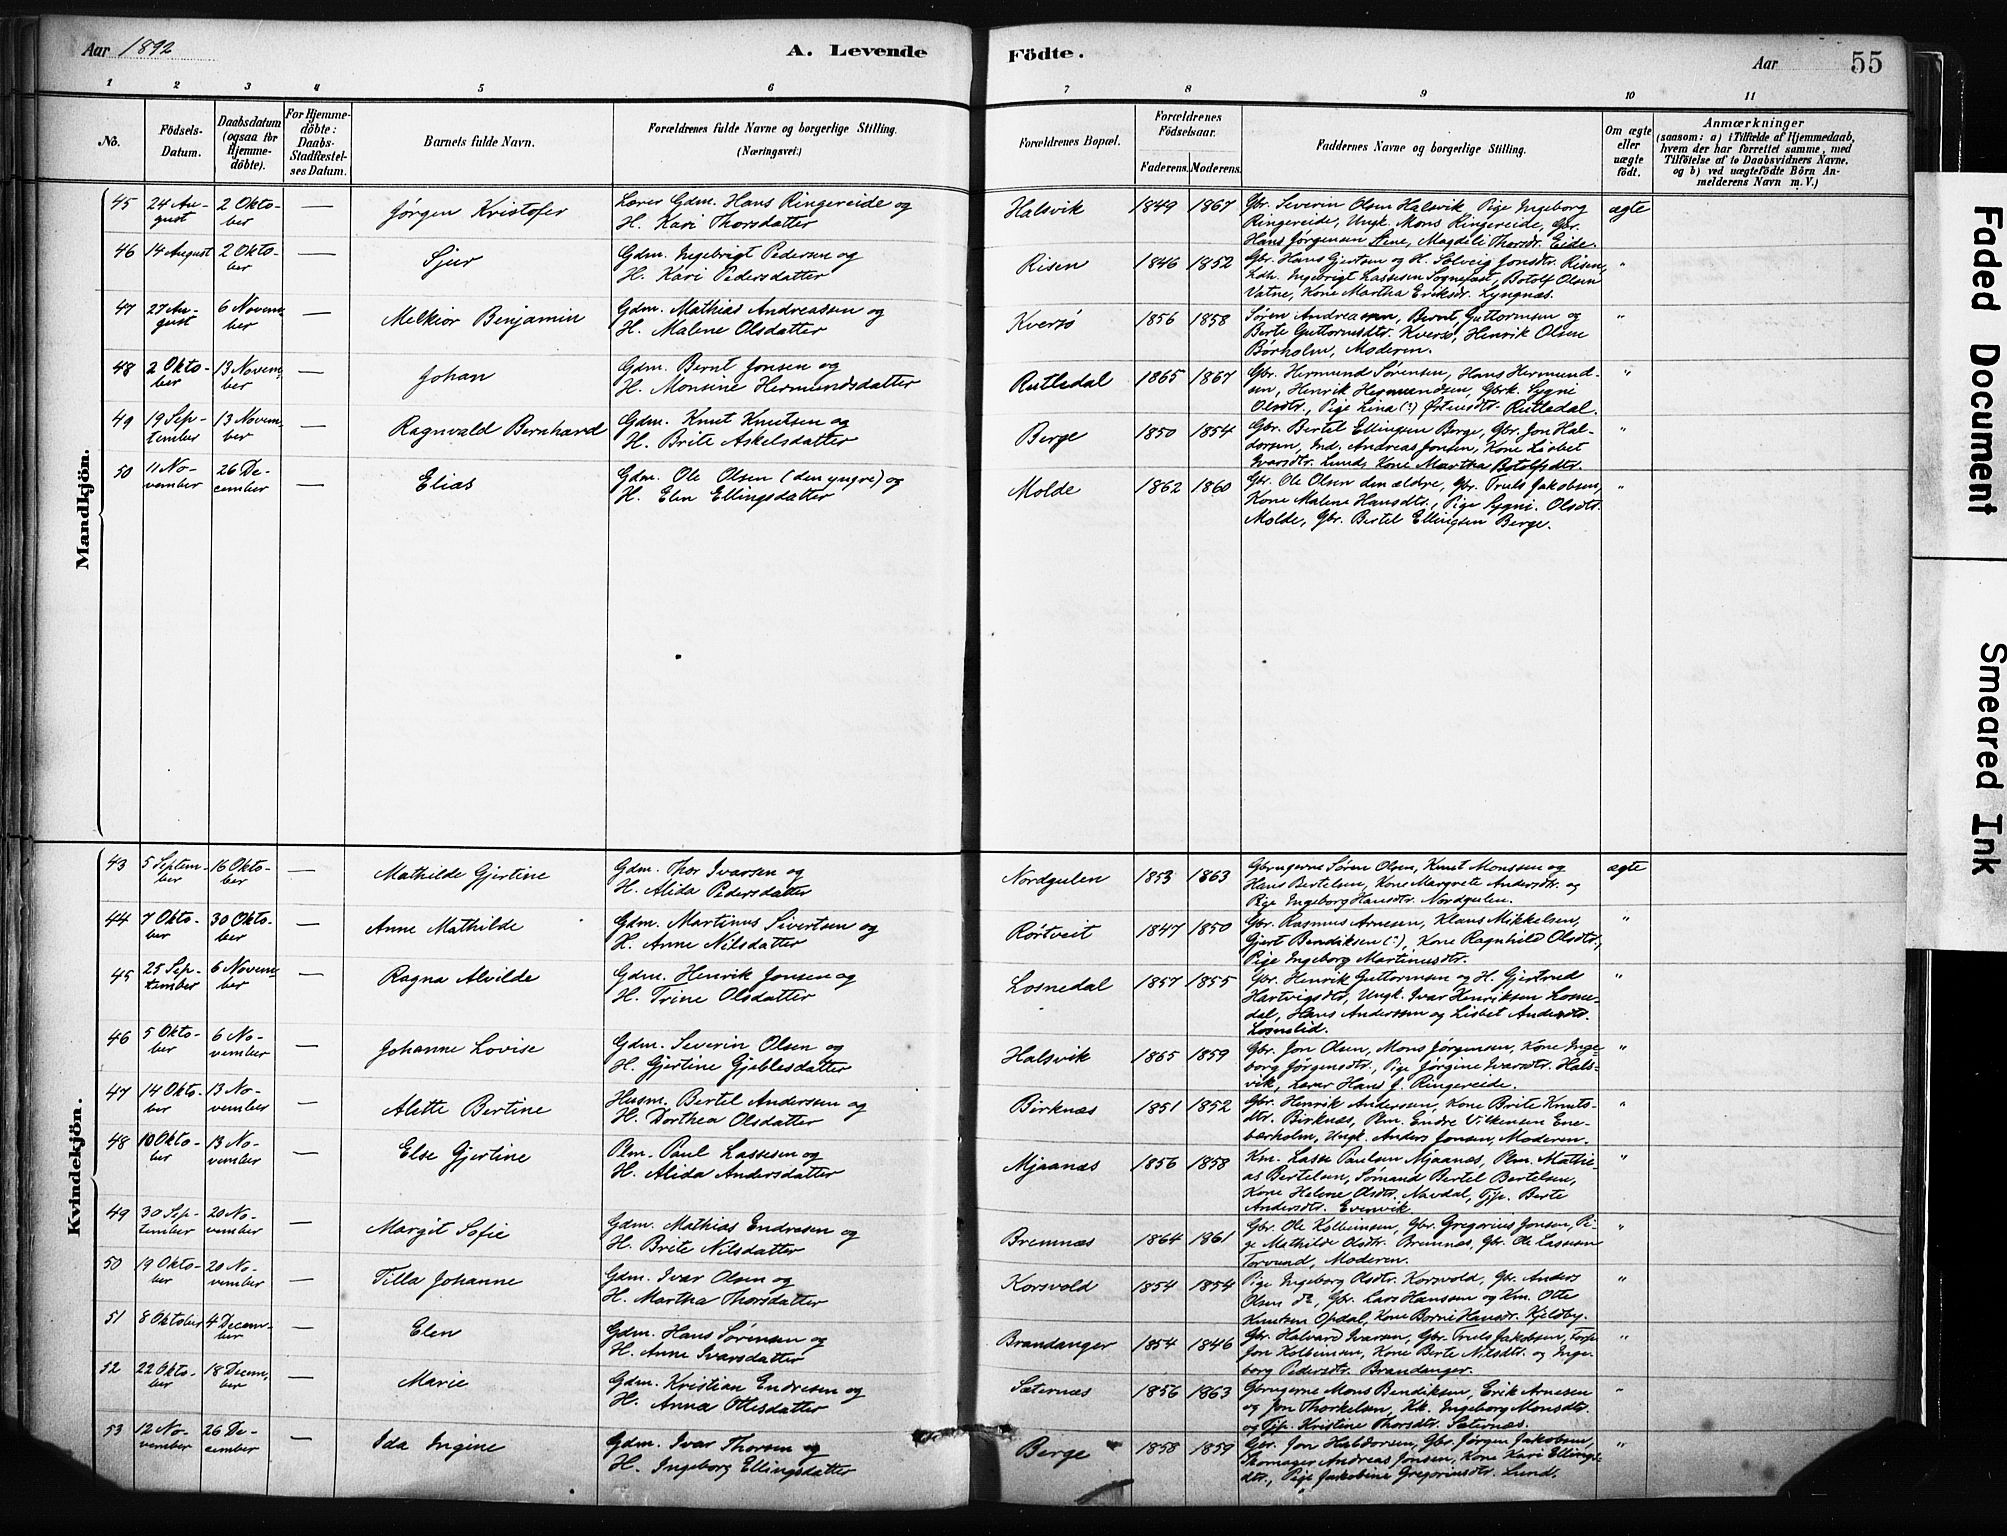 Aar 1892
A. Levende
Födte.
Aar
55
1 2 3 4 5 6 7 8 9 10 11
No.
Födsels-Datum.
Daabsdatum (ogsaa for Hjemme-döbte).
For Hjemme-döbte: Daabs-Stadfæstel-ses Datum.
Barnets fulde Navn.
Forældrenes fulde Navne og borgerlige Stilling. (Næringsvei.)
Forældrenes Bopæl.
Forældrenes Födselsaar.
Faderens. Moderens.
Faddernes Navne og borgerlige Stilling.
Om ægte eller uægte födt.
Anmærkninger
(saasom: a) i Tilfælde af Hjemmedaab, hvem der har forrettet samme, med Tilföielse af to Daabsvidners Navne, og b) ved uægtefödte Börn An-melderens Navn m. V.)
Mandkjön.
45 24 Au-gust 2 Okto-ber — Jørgen Kristofer
Lærer Gdm. Hans Ringereide og
H. Kari Thorsdatter
Halsvik 1849 1867
Gbr. Severin Olsen Halsvik, Pige Ingeborg
Ringereide, Ungk. Mons Ringereide, Gbr.
Hans Jørgensen Stene, Magdeli Thorsdr. Eide.
ægte
46 14 August 2 Okto-ber — Sjur
Gdm. Ingebrigt Pedersen og
H. Kari Pedersdatter
Risen 1846 1852
Gbr. Hans Gjertsen og H. Solveig Jonsdtr. Risen,
Ldh. Ingebrigt Lassesen Sognefæst, Botolf Olsen
Vatne, Kone Martha Eriksdr. Lyngnæs.
"
47 27 Au-gust 6 Novem-ber — Melkior Benjamin
Gdm. Mathias Andreassen og
H. Malene Olsdatter
Kversø 1856 1858
Søren Andreassen, Bernt Guttormsen og
Berte Guttormsdtr. Kversø, Henrik Olsen
Børholm, Moderen.
"
48 2 Okto-ber 13 Novem-ber — Johan
Gdm. Bernt Jonsen og
H. Monsine Hermundsdatter
Rutledal 1865 1867
Gbr. Hermund Sørensen, Hans Hermund-
sen, Henrik Hermundsen, Gbrk. Sygni
Olsdtr., Pige Lina (:) Østensdtr. Rutledal.
"
49 19 Sep-tember 13 Novem-ber — Ragnvald Bernhard
Gdm. Knut Knutsen og
H. Brite Askelsdatter
Berge 1850 1854
Gbr. Bertel Ellingsen Berge, Gbr. Jon Hal-
dorsen, Ind. Andreas Jonsen, Kone Lisbet
Ivarsdtr. Lund, Kone Martha Botolfsdtr.
"
50 11 No-vember 26 De-cember — Elias
Gdm. Ole Olsen (den yngre) og
H. Elen Ellingsdatter
Molde 1862 1860
Gbr. Ole Olsen den ældre, Gbr. Truls Jakobsen,
Kone Malene Hansdtr., Pige Sygni Olsdtr.
Molde, Gbr. Bertel Ellingsen Berge.
"
Kvindekjön.
43 5 Septem-ber 16 Okto-ber — Mathilde Gjertine
Gdm. Thor Ivarsen og
H. Alida Pedersdatter
Nordgulen 1853 1863
Gbrugerne Søren Olsen, Knut Monssen og
Hans Bertelsen, Kone Margrete Andersdtr. og
Pige Ingeborg Hansdtr. Nordgulen.
ægte
44 7 Okto-ber 30 Okto-ber — Anne Mathilde
Gdm. Martinus Sivertsen og
H. Anne Nilsdatter
Rørtveit 1847 1850
Gbr. Rasmus Arnesen, Klaus Mikkelsen,
Gjert Bendiksen (:), Kone Ragnhild Olsdtr.,
Pige Ingeborg Martinusdtr.
"
45 25 Sep-tember 6 Novem-ber — Ragna Alvilde
Gdm. Henrik Jonsen og
H. Trine Olsdatter
Losnedal 1857 1855
Gbr. Henrik Guttormsen og H. Gjertrud
Hartvigsdtr, Ungk. Ivar Henriksen Losne-
dal, Hans Anderssen og Lisbet Andersdtr.
Losnelid.
"
46 5 Okto-ber 6 No-vember — Johanne Lovise
Gdm. Severin Olsen og
H. Gjertine Gjeblesdatter
Halsvik 1865 1859
Gbr. Jon Olsen, Mons Jørgensen, Kone Inge-
borg Jørgensdtr., Pige Jørgine Ivarsdtr. Hals-
vik, Lærer Hans J. Ringereide.
"
47 14 Okto-ber 13 No-vember — Alette Bertine
Husm. Bertel Anderssen og
H. Dorthea Olsdatter
Birknæs 1851 1852
Gbr. Henrik Andersen, Kone Brite Knuts-
dtr. Birknæs, Plm. Endre Vilkensen Ene-
bærholm, Ungk. Anders Jonsen, Moderen.
"
48 10 Okto-ber 13 No-vember — Else Gjertine
Plm. Paul Lassesen og
H. Alida Andersdatter
Mjaanæs 1856 1858
Km. Lasse Paulsen Mjaanæs, Plm. Mathi-
as Bertelsen, Sømand Bertel Bertelsen,
Kone Helene Olsdtr. Navdal, Tjp. Berte
Andersdtr. Evenvik
"
49 30 Sep-tember 20 No-vember — Margit Sofie
Gdm. Mathias Endresen og
H. Brite Nilsdatter
Bremnæs 1864 1861
Gbr. Ole Kolbeinsen, Gbr. Gregorius Jonsen, Pi-
ge Mathilde Olsdtr. Bremnæs, Gbr. Ole Lassesen
Torvund, Moderen.
"
50 19 Okto-ber 20 No-vember — Tilla Johanne
Gdm. Ivar Olsen og
H. Martha Thorsdatter
Korsvold 1854 1854
Pige Ingeborg Olsdtr. Korsvold, Gbr. Anders
Olsen do, Gbr. Lars Hanssen og Km. Otte
Knutsen Opdal, Kone Borni Hansdr. Kjeldby.
"
51 8 Oktober 4 Decem-ber — Elen
Gdm. Hans Sørensen og
H. Anne Ivarsdatter
Brandanger 1854 1846
Gbr. Halvard Ivarsen, Gbr. Truls Jakobsen,
Jon Kolbeinsen, Kone Berte Nilsdtr. og Inge-
borg Pedersdtr. Brandanger.
"
52 22 Okto-ber 18 Decem-ber — Marie
Gdm. Kristian Endresen og
H. Anna Ottesdatter
Sæternæs 1856 1863
Gbrugerne Mons Bendiksen, Erik Arnesen
og Jon Thorkelsen, Kk. Ingeborg Monsdtr.
og Tjp. Kristine Thorsdtr. Sæternæs.
"
53 12 No-vember 26 De-cember — Ida Ingine
Gdm. Ivar Thorsen og
H. Ingeborg Ellingsdatter
Berge 1858 1859
Gbr. Jon Haldorsen, Gbr. Jørgen Jakobsen,
Skomager Andreas Jonsen, Kone Kari Ellings-
dtr., Pige Jakobine Gregoriusdtr. Lund.
"
Faded Document
Smeared Ink